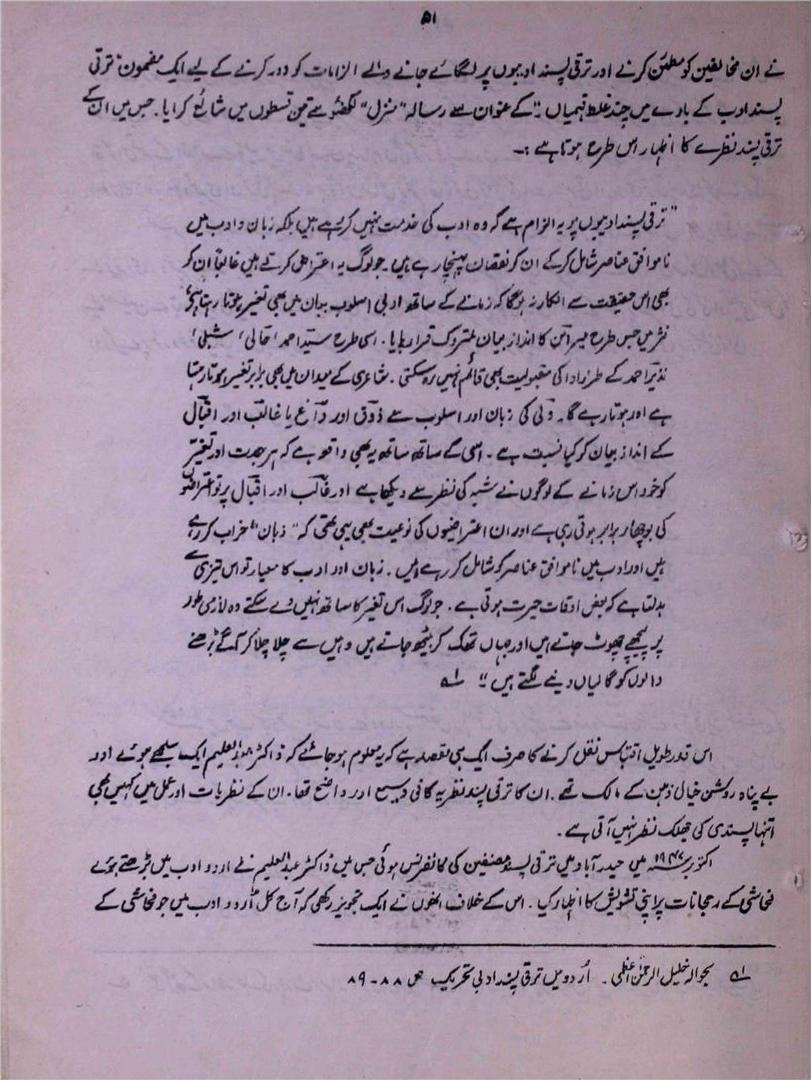 ۵۱
نے ان مخالفین کو مطمئن کرنے اور ترقی پسند ادیبوں پر لگائے جانے والے الزامات کو دور کرنے کے لیے ایک مضمون "ترقی
پسند ادب کے بارے میں چند غلط فہمیاں" کے عنوان سے رسالہ "منزل" لکھنؤ سے تین قسطوں میں شائع کرایا۔ جس میں ان کے
ترقی پسند نظرے کا اظہار اس طرح ہوتا ہے :۔
"ترقی پسند ادیبوں پر یہ الزام ہے کہ وہ ادب کی خدمت نہیں کرتے ہیں بلکہ زبان و ادب میں
ناموافق عناصر شامل کرکے ان کو نقصان پہنچا رہے ہیں۔ جو لوگ یہ اعتراض کرتے ہیں غالباً ان کو
بھی اس حقیقت سے انکار نہ ہوگا کہ زمانے کے ساتھ ادبی اسلوب بیان میں بھی تغیر ہوتا رہتا ہے
نثر میں جس طرح میر امن کا انداز بیان متروک قرار پایا۔ اسی طرح سید احمد، حالی، شبلی،
نذیر احمد کے طرز ادا کی مقبولیت بھی قائم نہیں رہ سکتی۔ شاعری کے میدان میں بھی برابر تغیر ہوتا رہتا
ہے اور ہوتا رہے گا۔ ولی کی زبان اور اسلوب سے ذوق اور داغ یا غالب اور اقبال
کے انداز بیان کو کیا نسبت ہے۔ اسی کے ساتھ ساتھ یہ بھی واقعہ ہے کہ ہر جدت اور تغیر
کو خود اس زمانے کے لوگوں نے شبہ کی نظر سے دیکھا ہے اور غالب اور اقبال پر تو اعتراضوں
کی بوچھار برابر ہوتی رہی ہے اور ان اعتراضیوں کی نوعیت بھی یہی تھی کہ "زبان" خراب کر رہے
ہیں اور ادب میں ناموافق عناصر کو شامل کر رہے ہیں۔ زبان اور ادب کا معیار تو اس تیزی سے
بدلتا ہے کہ بعض اوقات حیرت ہوتی ہے۔ جو لوگ اس تغیر کا ساتھ نہیں دے سکتے وہ لازمی طور
پر پیچھے چھوٹ جاتے ہیں اور جہاں تھک کر بیٹھ جاتے ہیں وہیں سے چلا چلا کر آگے بڑھنے
والوں کو گالیاں دینے لگتے ہیں" ۵۱؎
اس قدر طویل اقتباس نقل کرنے کا صرف ایک ہی مقصد ہے کہ یہ معلوم ہو جائے کہ ڈاکٹر عبد العلیم ایک سلجھے ہوئے اور
بے پناہ روشن خیال ذہن کے مالک تھے۔ ان کا ترقی پسند نظریہ کافی وسیع اور واضح تھا۔ ان کے نظریات اور عمل میں کہیں بھی
انتہا پسندی کی جھلک نظر نہیں آتی ہے۔
اکتوبر ۱۹۴۷ء میں حیدرآباد میں ترقی پسند مصنفین کی کانفرنس ہوئی جس میں ڈاکٹر عبد العلیم نے اردو ادب میں بڑھتے ہوئے
فحاشی کے رجحانات پر اپنی تشویش کا اظہار کیا۔ اس کے خلاف انھوں نے ایک تجویز رکھی کہ آج کل اُردو ادب میں جو فحاشی کے
۵۱؎ بحوالہ خلیل الرحمٰن اعظمی۔ اُردو میں ترقی پسند ادبی تحریک ص ۸۸۔۸۹